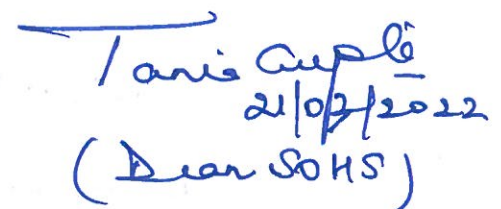 Tania Gupta
21/07/2022
(Dean SOHS)